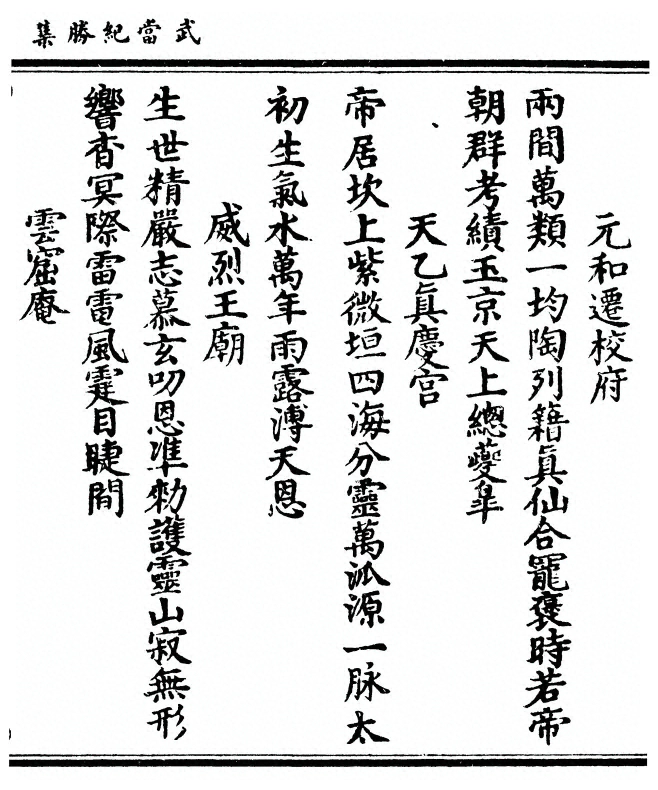 武當紀勝集
元和遷校府
兩間萬類一均陶列籍眞仙合寵褒時若帝
朝群考績玉京天上總夔皐
天乙眞慶宮
帝居坎上紫微垣四海分靈萬泒源一脉太
初生氣水萬年雨露溥天恩
威烈王廟
生世精嚴志慕玄叨恩準勑護靈山寂無形
響杳冥際雷電風霆目睫間
雲窟庵